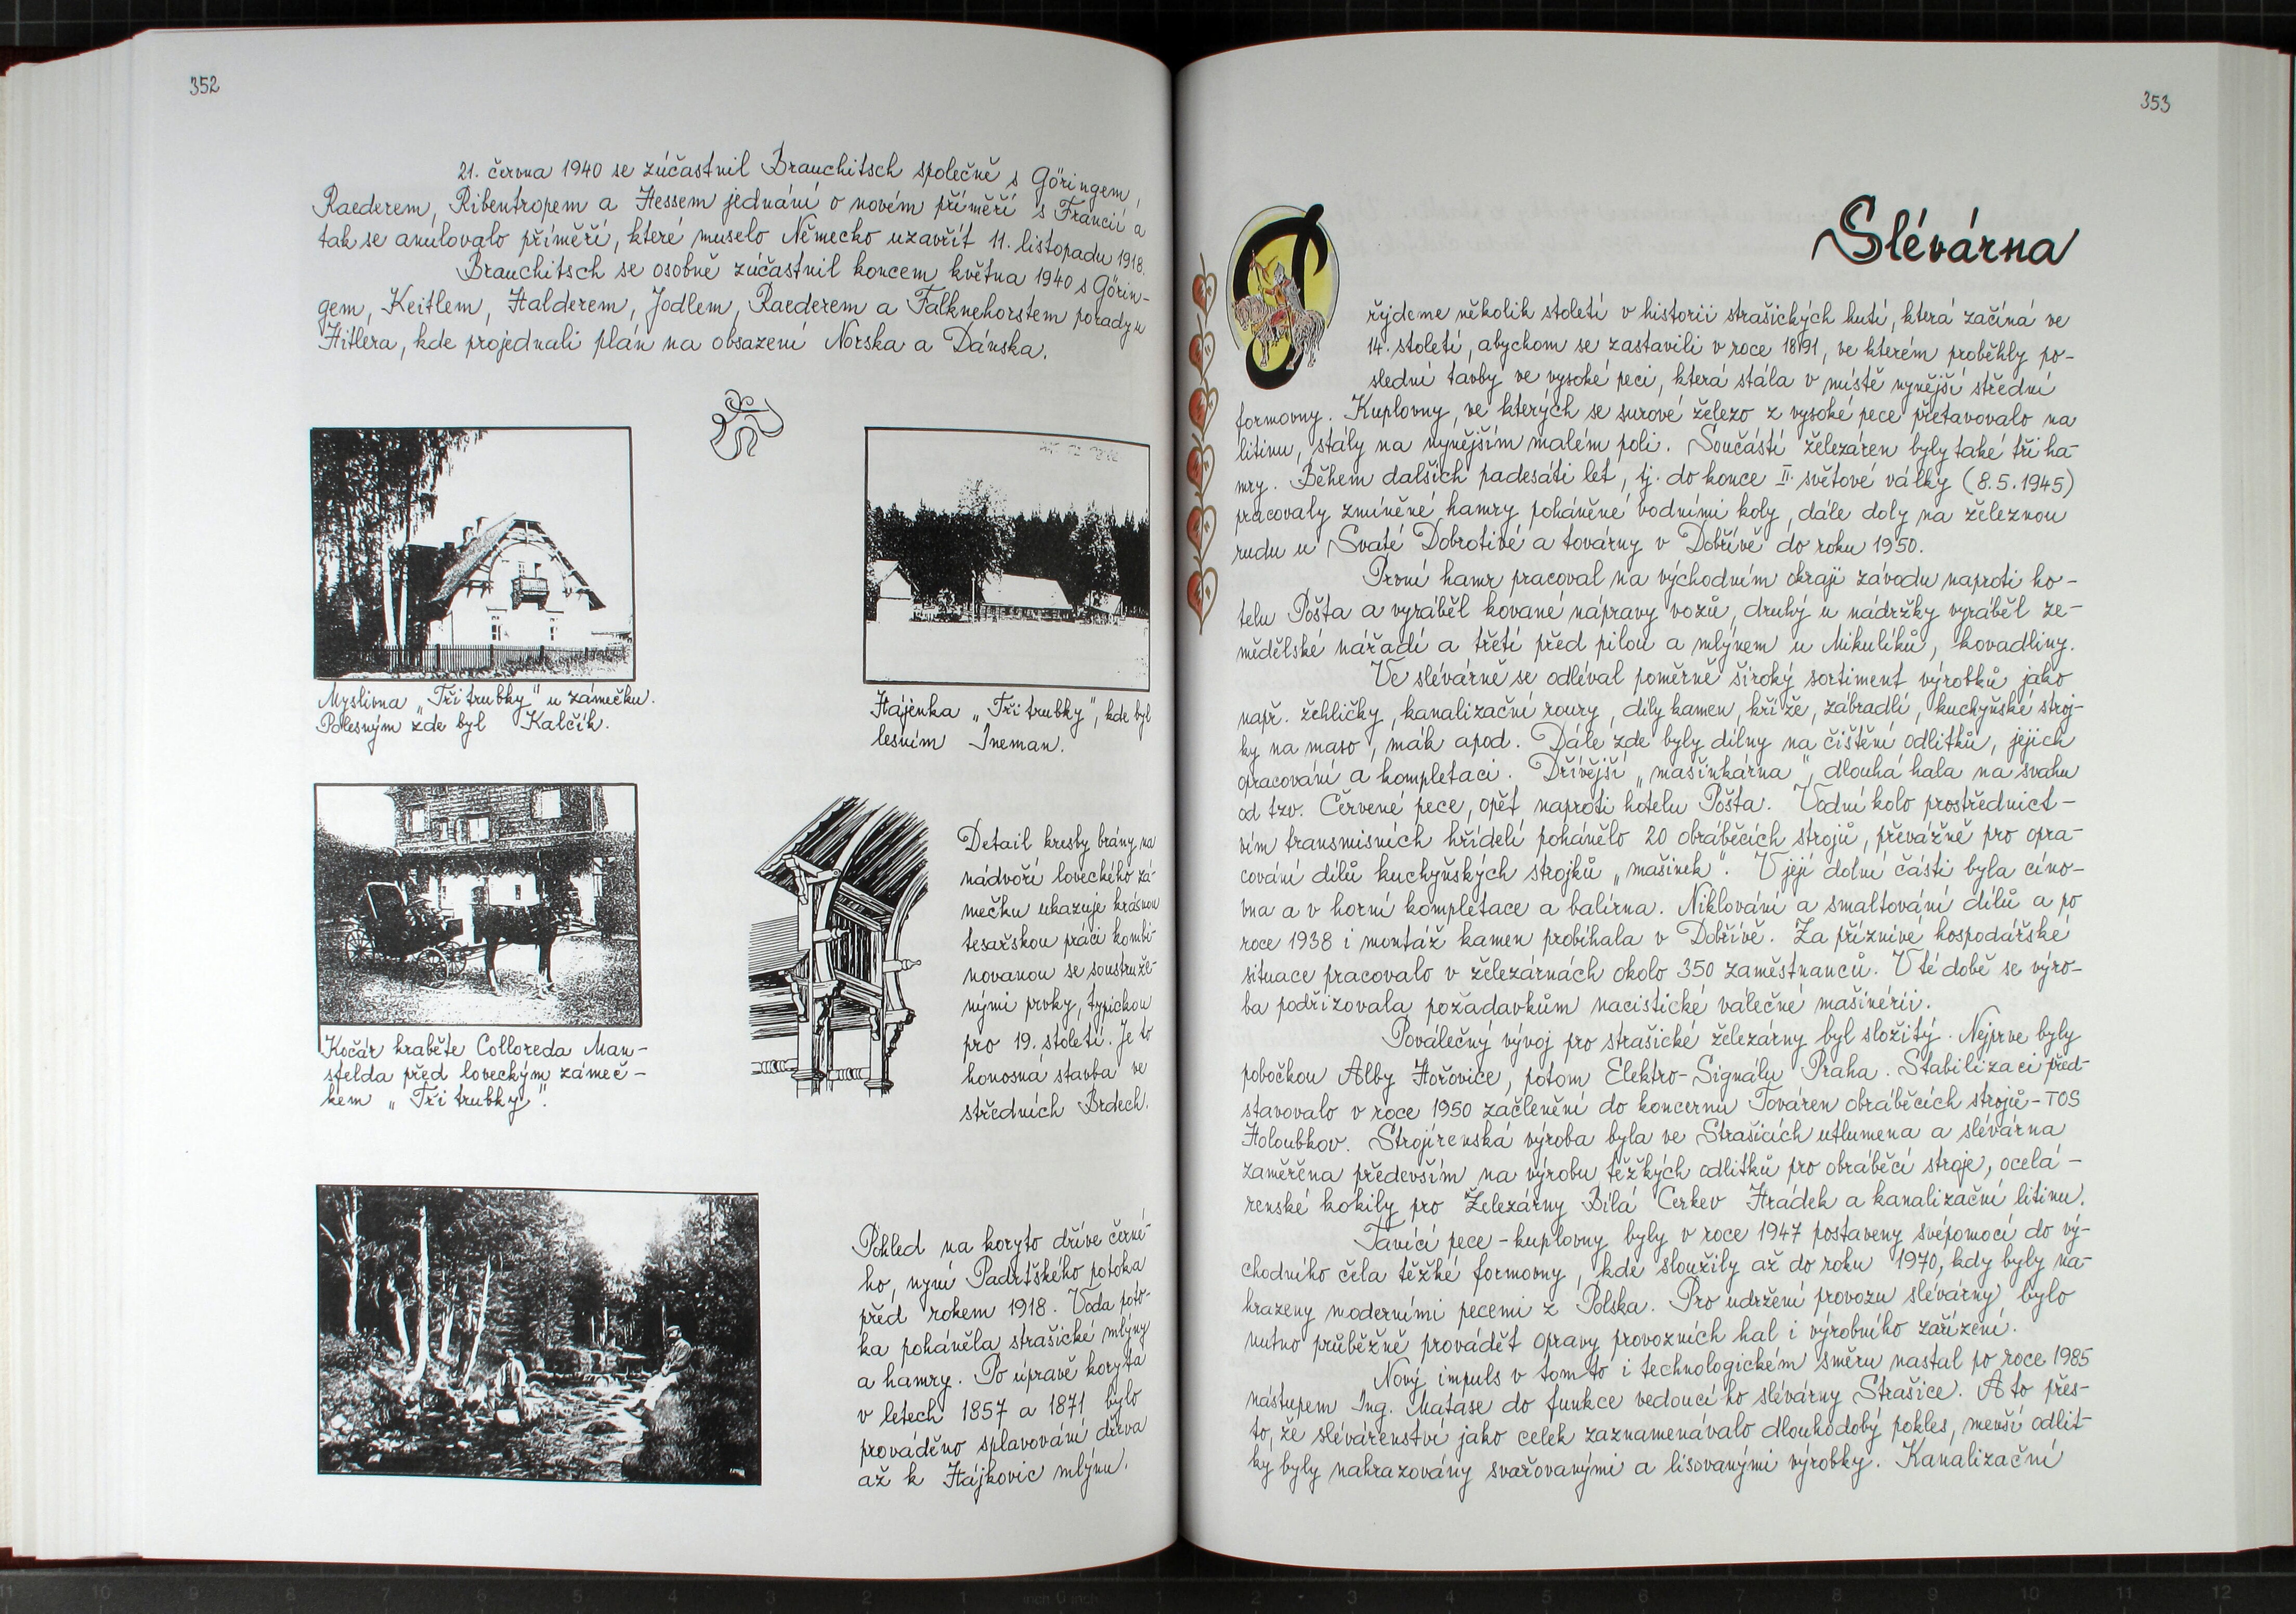 352
21. června 1940 se zúčastnil Brauchitsch společně s Göringem,
Raederem, Ribentropem a Hessem jednání o novém příměří s Francií a
tak se anulovalo příměří, které muselo Německo uzavřít 11. listopadu 1918.
Brauchitsch se osobně zúčastnil koncem května 1940 s Görin-
gem, Keitlem, Halderem, Jodlem, Raederem a Falknehorstem porady u
Hitlera, kde projednali plán na obsazení Norska a Dánska.
Myslivna „Tři trubky" u zámečku.
Polesným zde byl Kalčík.
Hájenka „Tři trubky", kde byl
lesním Ineman.
Kočár hraběte Colloreda Man-
sfelda před loveckým zámeč-
kem „Tři trubky".
Detail kresby brány na
nádvoří loveckého zá-
mečku ukazuje krásnou
tesařskou práci kombi-
novanou se soustruže-
nými prvky, typickou
pro 19. století. Je to
honosná stavba ve
středních Brdech.
Pohled na koryto dříve černé-
ho, nyní Padrťského potoka
před rokem 1918. Voda poto-
ka poháněla strašické mlýny
a hamry. Po úpravě koryta
v letech 1857 a 1871 bylo
prováděno splavování dřeva
až k Hájkovic mlýnu.
353
Slévárna
P
řejdeme několik století v historii strašických hutí, která začíná ve
14. století, abychom se zastavili v roce 1891, ve kterém proběhly po-
slední tavby ve vysoké peci, která stála v místě nynější střední
formovny. Kuplovny, ve kterých se surové železo z vysoké pece přetavovalo na
litinu, stály na nynějším malém poli. Součástí železáren byly také tři ha-
mry. Během dalších padesáti let, tj. do konce II. světové války (8.5.1945)
pracovaly zmíněné hamry poháněné vodními koly, dále doly na železnou
rudu u Svaté Dobrotivé a továrny v Dobřívě do roku 1950.
První hamr pracoval na východním okraji závodu naproti ho-
telu Pošta a vyráběl kované nápravy vozů, druhý u nádržky vyráběl ze-
mědělské nářadí a třetí před pilou a mlýnem u Mikulíků, kovadliny.
Ve slévárně se odléval poměrně široký sortiment výrobků jako
např. žehličky, kanalizační roury, díly kamen, kříže, zábradlí, kuchyňské stroj-
ky na maso, mák apod. Dále zde byly dílny na čištění odlitků, jejich
opracování a kompletaci. Dřívější „mašinkárna", dlouhá hala na svahu
od tzv. Červené pece, opět naproti hotelu Pošta. Vodní kolo prostřednict-
vím transmisních hřídelí pohánělo 20 obráběcích strojů, převážně pro opra-
cování dílů kuchyňských strojků „mašinek". V její dolní části byla cíno-
vna a v horní kompletace a balírna. Niklování a smaltování dílů a po
roce 1938 i montáž kamen probíhala v Dobřívě. Za příznivé hospodářské
situace pracovalo v železárnách okolo 350 zaměstnanců. V té době se výro-
ba podřizovala požadavkům nacistické válečné mašinérii.
Poválečný vývoj pro strašické železárny byl složitý. Nejprve byly
pobočkou Alby Hořovice, potom Elektro-Signálu Praha. Stabilizaci před-
stavovalo v roce 1950 začlenění do koncernu Továren obráběcích strojů - TOS
Holoubkov. Strojírenská výroba byla ve Strašicích utlumena a slévárna
zaměřena především na výrobu těžkých odlitků pro obráběcí stroje, ocelá-
renské kokily pro Železárny Bílá Cerkev Hrádek a kanalizační litinu.
Tavící pece - kuplovny byly v roce 1947 postaveny svépomocí do vý-
chodního čela těžké formovny, kde sloužily až do roku 1970, kdy byly na-
hrazeny moderními pecemi z Polska. Pro udržení provozu slévárny bylo
nutno průběžně provádět opravy provozních hal i výrobního zařízení.
Nový impuls v tomto i technologickém směru nastal po roce 1985
nástupem Ing. Matase do funkce vedoucího slévárny Strašice. A to přes-
to, že slévárenství jako celek zaznamenávalo dlouhodobý pokles, menší odlit-
ky byly nahrazovány svařovanými a lisovanými výrobky. Kanalizační